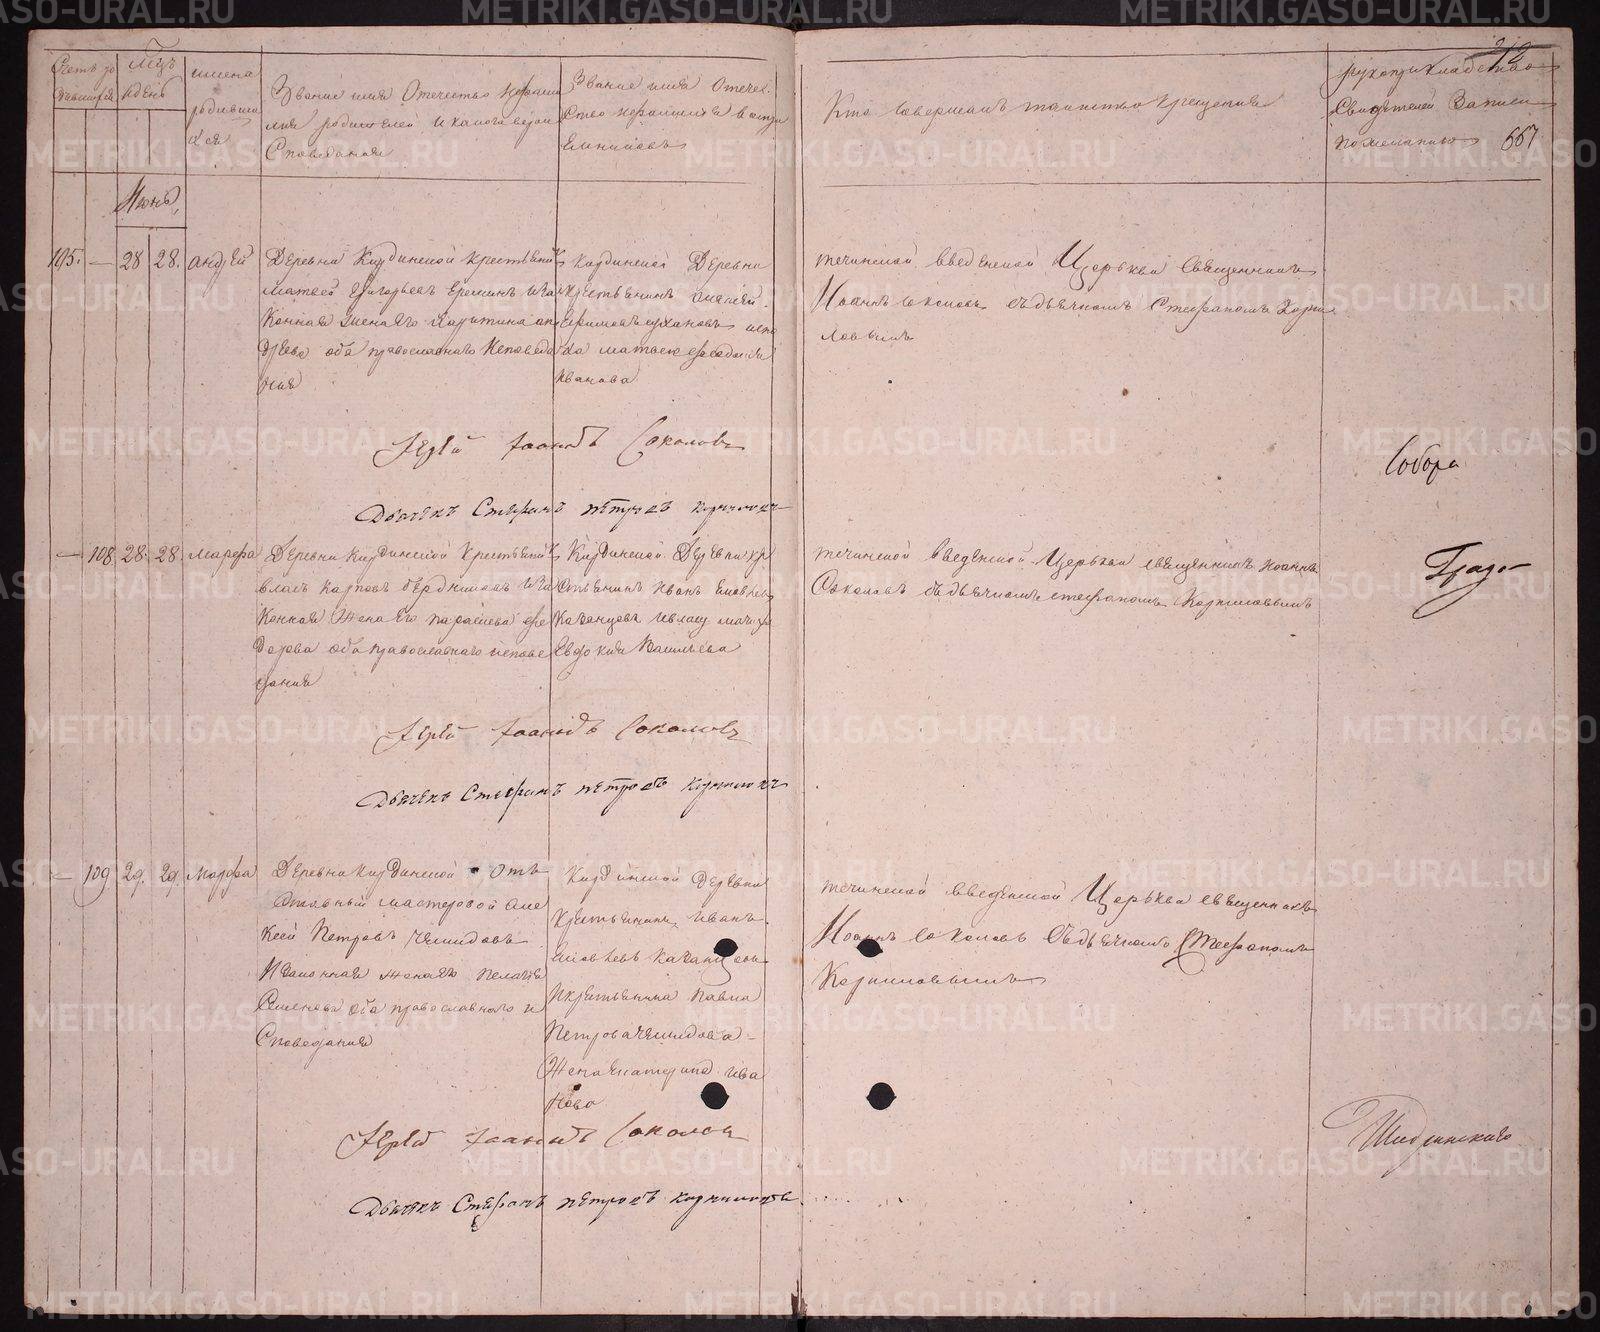 Счетъ ро
дившихся
Мѣцъ
и день
имена
родивши
хся
Званіе имя Отечество и фами
лия родителей и какого веро
исповѣданія
Званіе имя Отечес
ство и фамилія воспрі
емниковъ
Кто совершалъ таинство крещенія
рукоприкладство
Свидетелей Записи
по желанію
667
Июнь
105. — 28 28. андрей
Деревни Кирдинской крестьянинъ
Матвей Григорьевъ Еремин и За
Конная жена его Харитина ан
дреева оба православнаго Исповеда
ния
Деревни
Крестьянинъ
Ефимовъ
Иванова
теченской введенской Церькви Священникъ
Иоаннъ Соколовъ съ дьячкомъ Стефаномъ Корни
ловымъ
Іерей Іоаннъ Соколовъ
Дьячекъ Стефанъ Петровъ Корниловъ
Собора
— 108 28. 28 Марфа
Деревни Кирдинской Крестьянинъ
власъ Карповъ Бердниковъ и За
Конная Жена Его Парасковья фе
дорова оба православнаго исповѣ
дания
Кирдинской Деревни кр
стьянинъ Иванъ Яковлевъ
Казанцовъ
Евдокия Васильева
теченской Введенской Церькви священникъ иоаннъ
Соколовъ съ дьячкомъ стефаномъ Корниловымъ
Градо-
Іерей Іоаннъ Соколовъ
Дьячекъ Стефанъ Петровъ Корниловъ
— 109 29. 29. Марфа
Деревни Кирдинской Отъ
Ставный мастеровой Але
Ксей Петровъ
И Законная жена его Пелагея
Семенова оба православного и
Споведания
Кирдинской деревни
Крестьянинъ Иванъ
Яковлевъ Казанцовъ
И крестьянина Павла
Петрова
Жена Екатерина ива
Нова
теченской введенской Церькви священникъ
Иоаннъ Соколовъ Съ дьячкомъ Стефаномъ
Корниловымъ
Іерей Іоаннъ Соколовъ
Дьячекъ Стефанъ Петровъ Корниловъ
Шадринскаго
METRIKI.GASO-URAL.RU